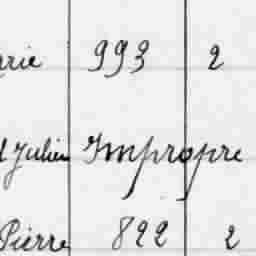 993 2
Julien Impropre
Pierre 822 2